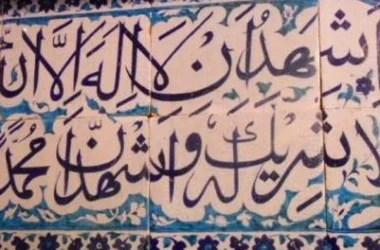 اشهد ان لا اله الا
لا شريك له واشهد ان محمد